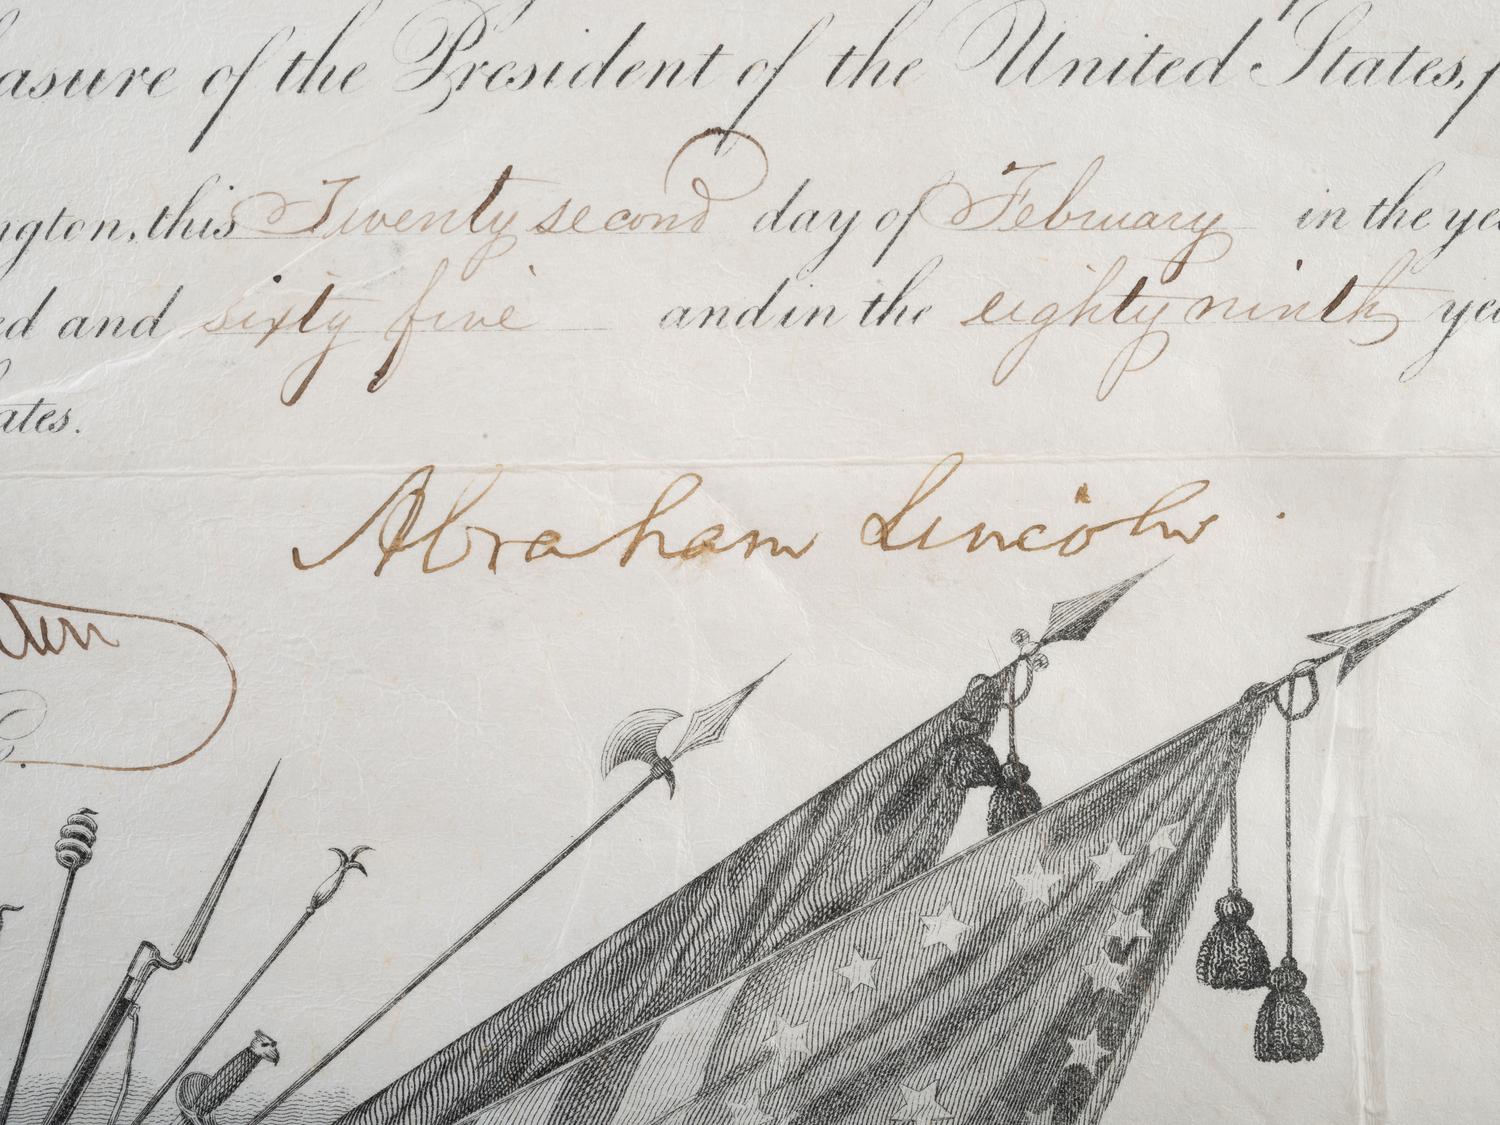 easure of the President of the United States, f
ngton, this Twenty second day of February in the yea
ed and sixty five and in the eighty ninth yea
ates.
Abraham Lincoln.